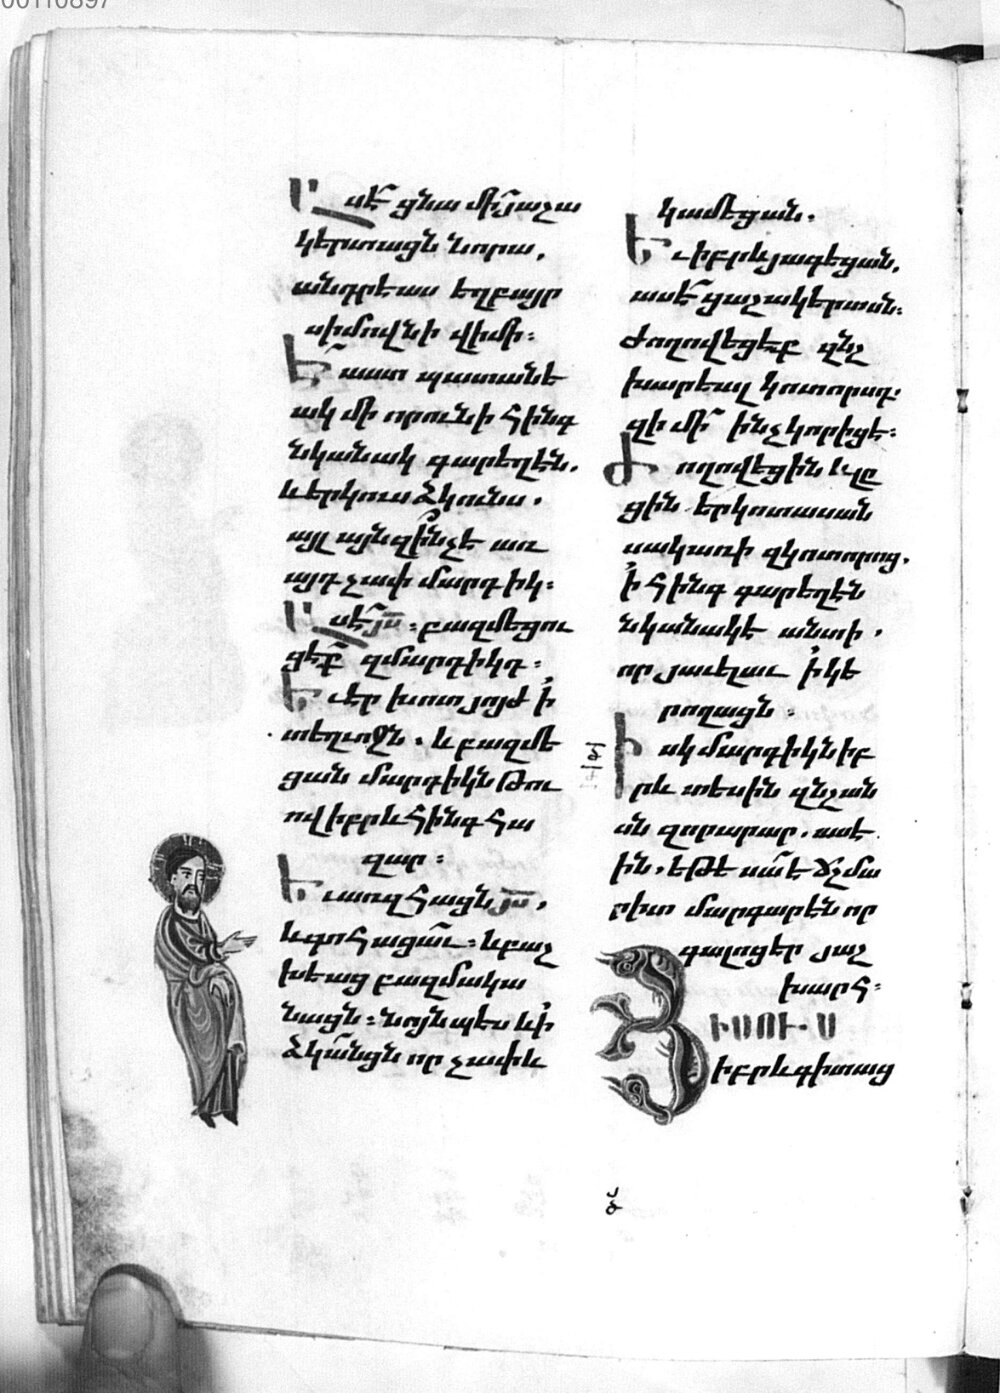 Ասէ ցնա մի յաշա
կերտացն նորա,
անդրէաս եղբայր
սիմովնի վիմի։
Է աստ պատանե
ակ մի որ ունի հինգ
նկանակ գարեղէն.
և երկուս ձկունս.
այլ այն զինչ է առ
այդ չափ մարդիկ։
Ասէ յս։ բազմեցու
ցէք զմարդիկդ։
Եւ էր խոտ յոյժ ՛ի
տեղւոջն. և բազմե
ցան մարդիկն թու
ով իբրև հինգ հա
զար։
Եւ առ զհացն յս,
և գոհացաւ։ և բաշ
խեաց բազմակա
նացն։ նոյնպէս և ՛ի
ձկանցն որչափ և
կամեցան.
Եւ իբրև յագեցան,
ասէ ցաշակերտսն։
ժողովեցէք զնշ
խարեալ կոտորսդ.
զի մի ինչ կորիցէ։
Ժողովեցին և լը
ցին երկոտասան
սակառի զկոտորոց.
՛ի հինգ գարեղէն
նկանակէ անտի.
որ յաւելաւ ՛ի կե
րողացն։
Իսկ մարդիկն իբ
րև տեսին զնշան
սն զոր արար. ասէ
ին. եթէ սա է ճշմա
րիտ մարգարէն որ
գալոց էր յաշ
խարհ։
ՅԻՍՈՒՍ
իբրև գիտաց